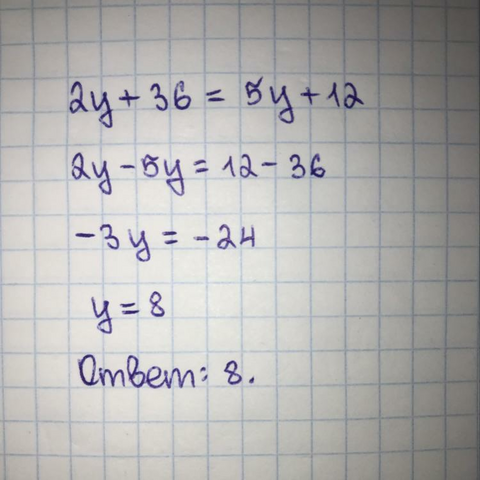 2y + 36 = 5y + 12
2y - 5y = 12 - 36
-3y = -24
y = 8
Ответ: 8.